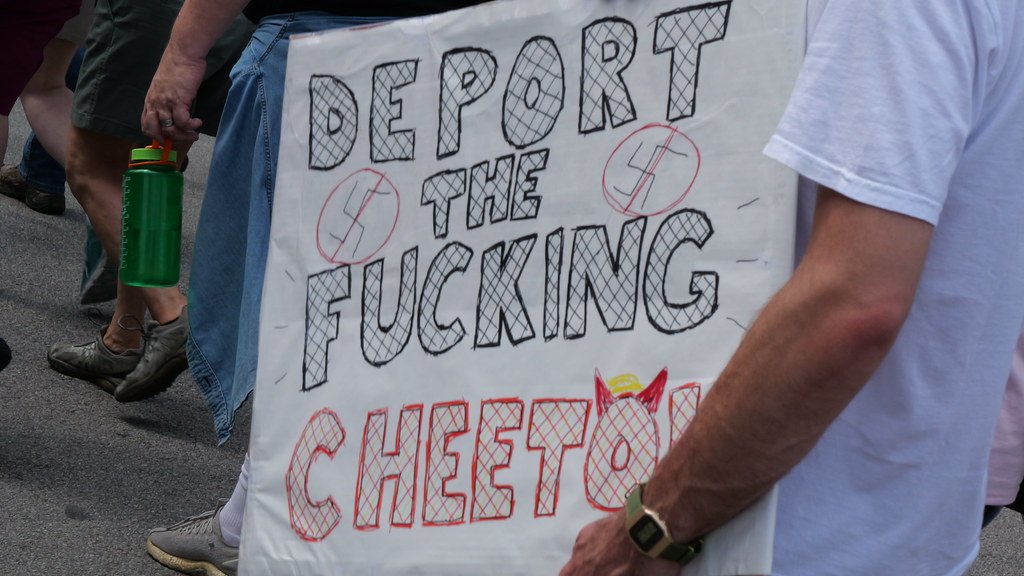 DEPORT
THE
FUCKING
CHEETO!